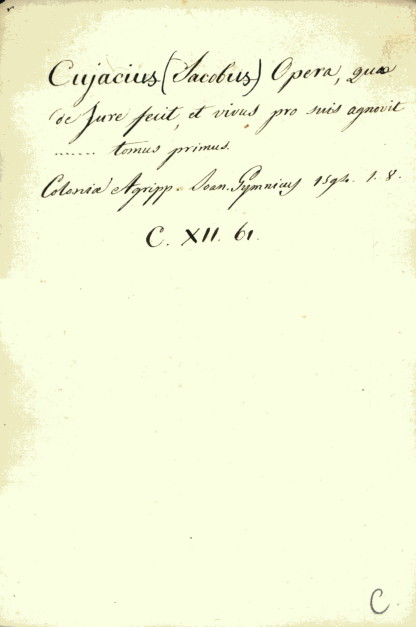 Cujacius (Jacobus) Opera, quae
de Jure fecit, et vivus pro suis agnovit
....... tomus primus.
Colonia Agripp. Joan. Gymnicus 1594. 1. 8.
C. XII. 61.
C